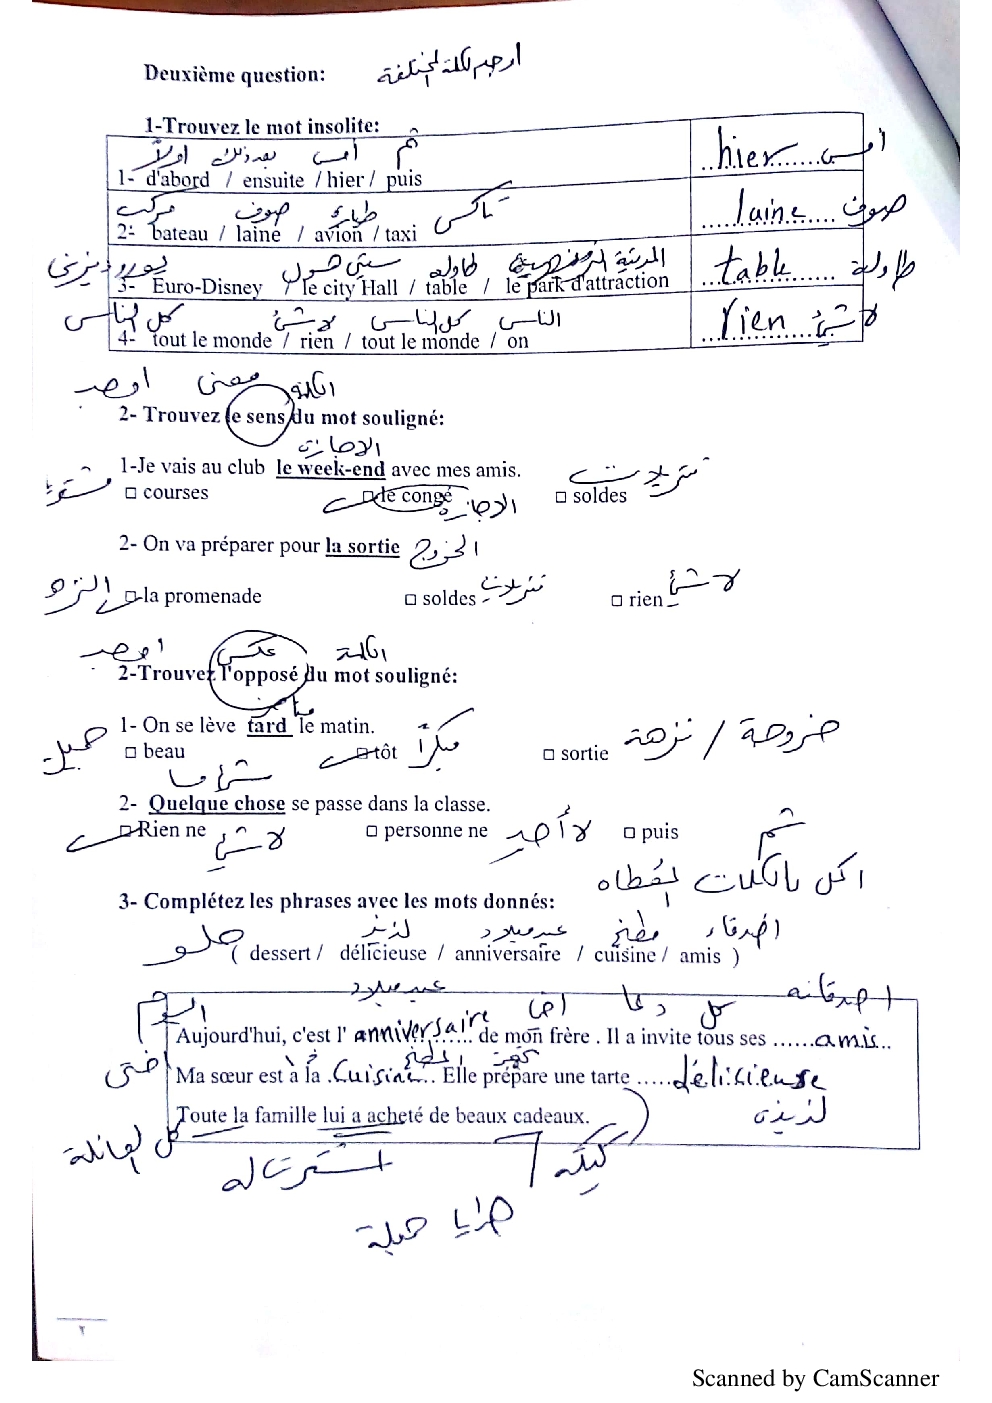 Deuxième question: أوجد الكلمة المختلفة
1-Trouvez le mot insolite:
اولاً بعد ذلك أمس ثم
1- d'abord / ensuite / hier / puis ...hier......... أمس
مركب صوف طيارة تاكسى
2- bateau / laine / avion / taxi ....laine.... صوف
يورو ديزنى سيتى هول طاولة المدينة
3- Euro-Disney / le city Hall / table / le park d'attraction ..table....... طاولة
كل الناس لا شئ كل الناس الناس
4- tout le monde / rien / tout le monde / on ...rien...... لا شئ
اوجد معنى الكلمة
2- Trouvez le sens du mot souligné:
الاجازة
1-Je vais au club le week-end avec mes amis.
□ courses □ le congé الاجازة □ soldes تنزيلات
2- On va préparer pour la sortie الخروج
□ la promenade □ soldes تنزيلات □ rien لا شئ
اوجد عكس الكلمة
2-Trouvez l'opposé du mot souligné:
1- On se lève tard le matin.
جميل □ beau □ tôt مبكراً □ sortie خروجة / نزهة
شئ ما
2- Quelque chose se passe dans la classe.
□ Rien ne لا شئ □ personne ne لا أحد □ puis ثم
اكمل بالكلمات المعطاه
3- Complétez les phrases avec les mots donnés:
حلو لذيذ عيد ميلاد مطبخ اصدقاء
( dessert / délicieuse / anniversaire / cuisine / amis )
عيد ميلاد أخى دعا كل اصدقائه
Aujourd'hui, c'est l' anniversaire de mon frère . Il a invite tous ses ......amis..
أختى المطبخ
Ma sœur est à la .Cuisine.. Elle prépare une tarte .....délicieuse
لذيذة
Toute la famille lui a acheté de beaux cadeaux.
كل العائلة اشترت له كيكه
هدايا جميلة
٢
Scanned by CamScanner